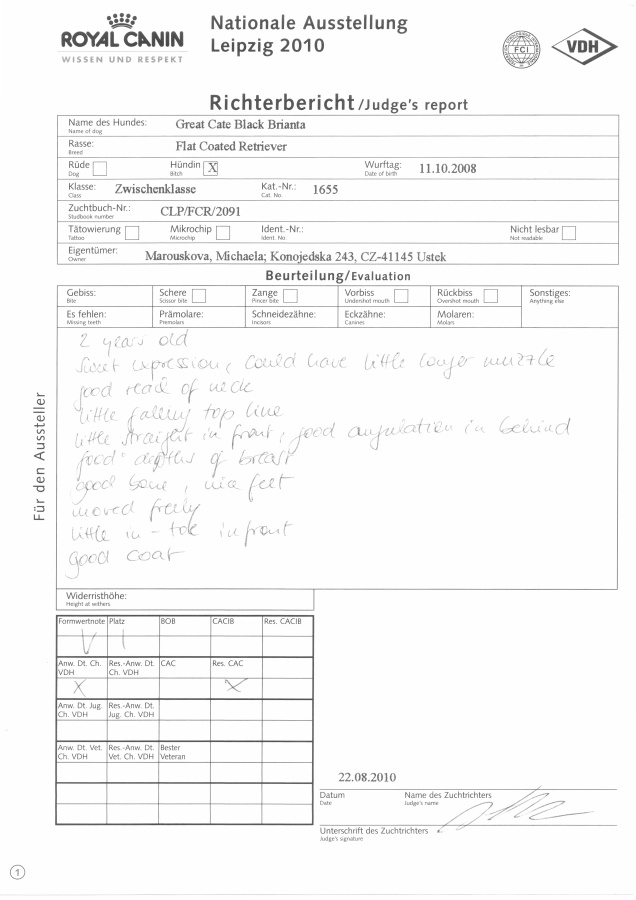 ROYAL CANIN
WISSEN UND RESPEKT
Nationale Ausstellung
Leipzig 2010
FCI
VDH
Richterbericht /Judge's report
Name des Hundes: Great Cate Black Brianta
Name of dog
Rasse: Flat Coated Retriever
Breed
Rüde Hündin X Wurftag: 11.10.2008
Dog Bitch Date of birth
Klasse: Zwischenklasse Kat.-Nr.: 1655
Class Cat. No.
Zuchtbuch-Nr.: CLP/FCR/2091
Studbook number
Tätowierung Mikrochip Ident.-Nr.: Nicht lesbar
Tattoo Microchip Ident. No. Not readable
Eigentümer: Marouskova, Michaela; Konojedska 243, CZ-41145 Ustek
Owner
Beurteilung/Evaluation
Gebiss: Schere Zange Vorbiss Rückbiss Sonstiges:
Bite Scissor bite Pincer bite Undershot mouth Overshot mouth Anything else
Es fehlen: Prämolare: Schneidezähne: Eckzähne: Molaren:
Missing teeth Premolars Incisors Canines Molars
Für den Aussteller
2 years old
sweet expression, could have little longer muzzle
good reach of neck
little falling top line
little straight in front, good angulation in behind
good depths of breast
good bone, nice feet
moved freely
little in - toe in front
good coat
Widerristhöhe:
Height at withers
Formwertnote Platz BOB CACIB Res. CACIB
V 1
Anw. Dt. Ch. VDH Res.-Anw. Dt. Ch. VDH CAC Res. CAC
X X
Anw. Dt. Jug. Ch. VDH Res.-Anw. Dt. Jug. Ch. VDH
Anw. Dt. Vet. Ch. VDH Res.-Anw. Dt. Vet. Ch. VDH Bester Veteran
22.08.2010
Datum Name des Zuchtrichters
Date Judge's name
Unterschrift des Zuchtrichters
Judge's signature
1